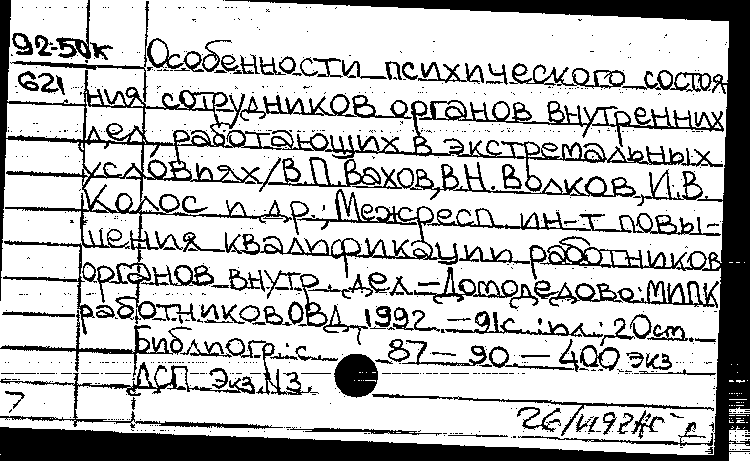 92-50к Особенности психического состоя
621 ния сотрудников органов внутренних
дел, работающих в экстремальных
условиях/В.П.Вахов,В.Н.Волков,И.В.
Колос и др.; Межресп. ин-т повы-
шения квалификации работников
органов внутр. дел.-Домодедово:МИПК
работников ОВД, 1992.-91с.:ил.;20см.
Библиогр.:с. 87-90.-400 экз.
ДСП. Экз.N3.
7